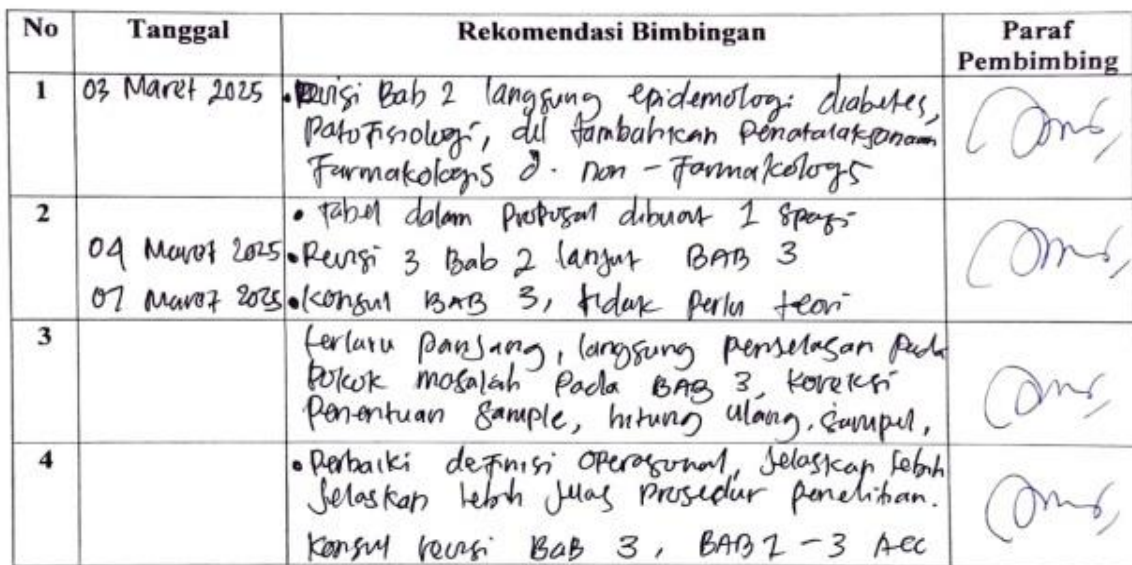 No Tanggal Rekomendasi Bimbingan Paraf Pembimbing
1 03 Maret 2025 • Revisi Bab 2 langsung epidemologi diabetes,
patofisiologi, dll tambahkan Penatalaksanaan
Farmakologis & non - Farmakologs
2 • Tabel dalam proposal dibuat 1 spasi
04 Maret 2025 • Revisi 3 Bab 2 lanjut BAB 3
07 Maret 2025 • Konsul BAB 3, tidak perlu teori
3 terlalu panjang, langsung penjelasan pada
pokok masalah pada BAB 3, koreksi
Penentuan sample, hitung ulang sampel,
4 • Perbaiki definisi operasional, jelaskan lebih
jelaskan lebih jelas prosedur penelitian.
Konsul revisi BAB 3, BAB 1 - 3 Acc